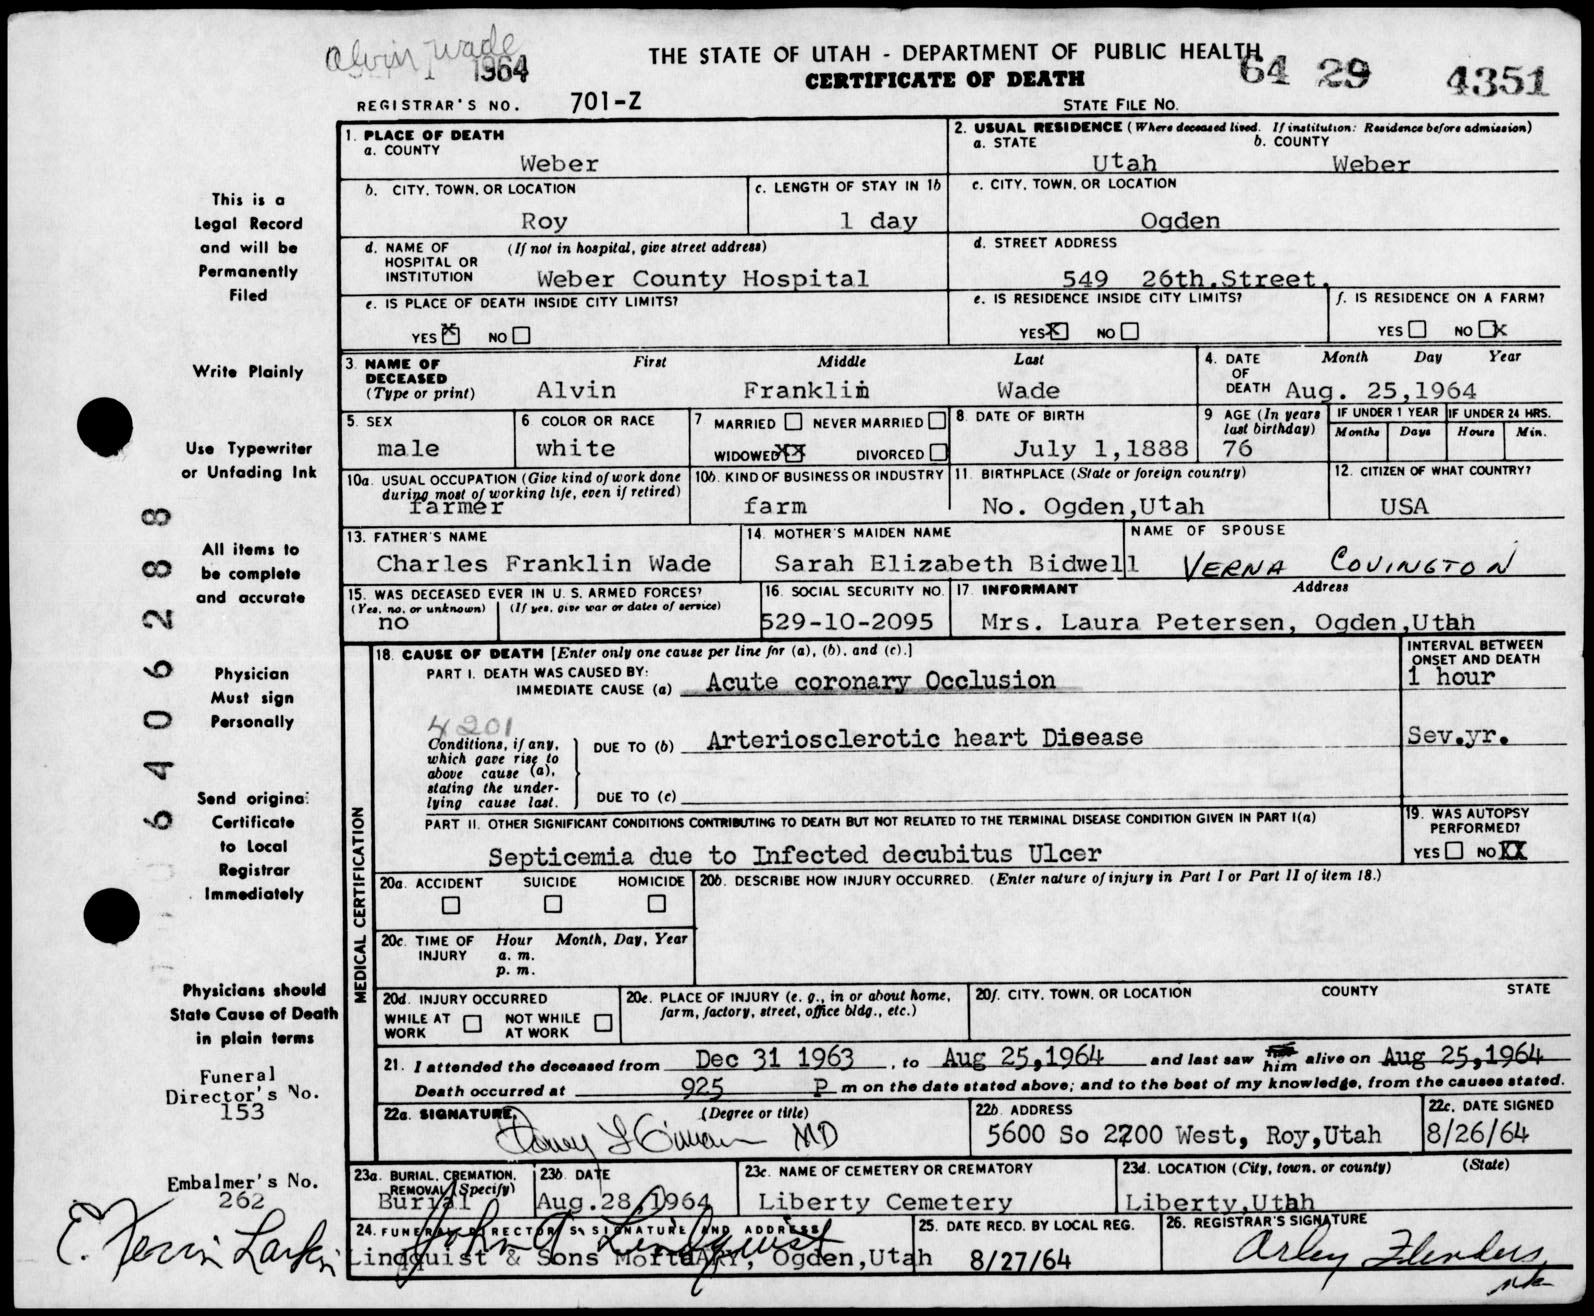 Alvin Wade
1964
THE STATE OF UTAH - DEPARTMENT OF PUBLIC HEALTH
CERTIFICATE OF DEATH
64 29 4351
REGISTRAR'S NO. 701-Z
STATE FILE NO.
1. PLACE OF DEATH
a. COUNTY
Weber
2. USUAL RESIDENCE (Where deceased lived. If institution: Residence before admission)
a. STATE b. COUNTY
Utah Weber
b. CITY, TOWN, OR LOCATION
Roy
c. LENGTH OF STAY IN 1b
1 day
c. CITY, TOWN, OR LOCATION
Ogden
d. NAME OF HOSPITAL OR INSTITUTION (If not in hospital, give street address)
Weber County Hospital
d. STREET ADDRESS
549 26th.Street.
e. IS PLACE OF DEATH INSIDE CITY LIMITS?
YES X NO
e. IS RESIDENCE INSIDE CITY LIMITS?
YES X NO
f. IS RESIDENCE ON A FARM?
YES NO X
3. NAME OF DECEASED (Type or print)
First Middle Last
Alvin Franklin Wade
4. DATE OF DEATH
Month Day Year
Aug. 25,1964
5. SEX
male
6 COLOR OR RACE
white
7 MARRIED NEVER MARRIED
WIDOWED XX DIVORCED
8. DATE OF BIRTH
July 1,1888
9 AGE (In years last birthday)
76
IF UNDER 1 YEAR IF UNDER 24 HRS.
Months Days Hours Min.
10a. USUAL OCCUPATION (Give kind of work done during most of working life, even if retired)
farmer
10b. KIND OF BUSINESS OR INDUSTRY
farm
11. BIRTHPLACE (State or foreign country)
No. Ogden,Utah
12. CITIZEN OF WHAT COUNTRY?
USA
13. FATHER'S NAME
Charles Franklin Wade
14. MOTHER'S MAIDEN NAME
Sarah Elizabeth Bidwell
NAME OF SPOUSE
VERNA COVINGTON
15. WAS DECEASED EVER IN U. S. ARMED FORCES?
(Yes, no, or unknown) (If yes, give war or dates of service)
no
16. SOCIAL SECURITY NO.
529-10-2095
17. INFORMANT Address
Mrs. Laura Petersen, Ogden,Utah
MEDICAL CERTIFICATION
18. CAUSE OF DEATH [Enter only one cause per line for (a), (b), and (c).]
INTERVAL BETWEEN ONSET AND DEATH
PART I. DEATH WAS CAUSED BY:
IMMEDIATE CAUSE (a) Acute coronary Occlusion
1 hour
4201
Conditions, if any, which gave rise to above cause (a), stating the underlying cause last.
DUE TO (b) Arteriosclerotic heart Disease
Sev.yr.
DUE TO (c)
PART II. OTHER SIGNIFICANT CONDITIONS CONTRIBUTING TO DEATH BUT NOT RELATED TO THE TERMINAL DISEASE CONDITION GIVEN IN PART I(a)
Septicemia due to Infected decubitus Ulcer
19. WAS AUTOPSY PERFORMED?
YES NO XX
20a. ACCIDENT SUICIDE HOMICIDE
20b. DESCRIBE HOW INJURY OCCURRED. (Enter nature of injury in Part I or Part II of item 18.)
20c. TIME OF INJURY
Hour Month, Day, Year
a. m.
p. m.
20d. INJURY OCCURRED
WHILE AT WORK NOT WHILE AT WORK
20e. PLACE OF INJURY (e. g., in or about home, farm, factory, street, office bldg., etc.)
20f. CITY, TOWN, OR LOCATION COUNTY STATE
21. I attended the deceased from Dec 31 1963, to Aug 25,1964 and last saw him alive on Aug 25,1964
Death occurred at 925 P m on the date stated above; and to the best of my knowledge, from the causes stated.
22a. SIGNATURE (Degree or title)
MD
22b. ADDRESS
5600 So 2700 West, Roy,Utah
22c. DATE SIGNED
8/26/64
23a. BURIAL, CREMATION, REMOVAL (Specify)
Burial
23b. DATE
Aug.28,1964
23c. NAME OF CEMETERY OR CREMATORY
Liberty Cemetery
23d. LOCATION (City, town, or county) (State)
Liberty,Utah
24. FUNERAL DIRECTOR'S SIGNATURE AND ADDRESS
John A Lindquist
Lindquist & Sons MortuARY, Ogden,Utah
25. DATE RECD. BY LOCAL REG.
8/27/64
26. REGISTRAR'S SIGNATURE
Arley Flinders
This is a
Legal Record
and will be
Permanently
Filed
Write Plainly
Use Typewriter
or Unfading Ink
All items to
be complete
and accurate
Physician
Must sign
Personally
Send original
Certificate
to Local
Registrar
Immediately
Physicians should
State Cause of Death
in plain terms
Funeral
Director's No.
153
Embalmer's No.
262
E. Kevin Larkin
64 0 6 2 8 8